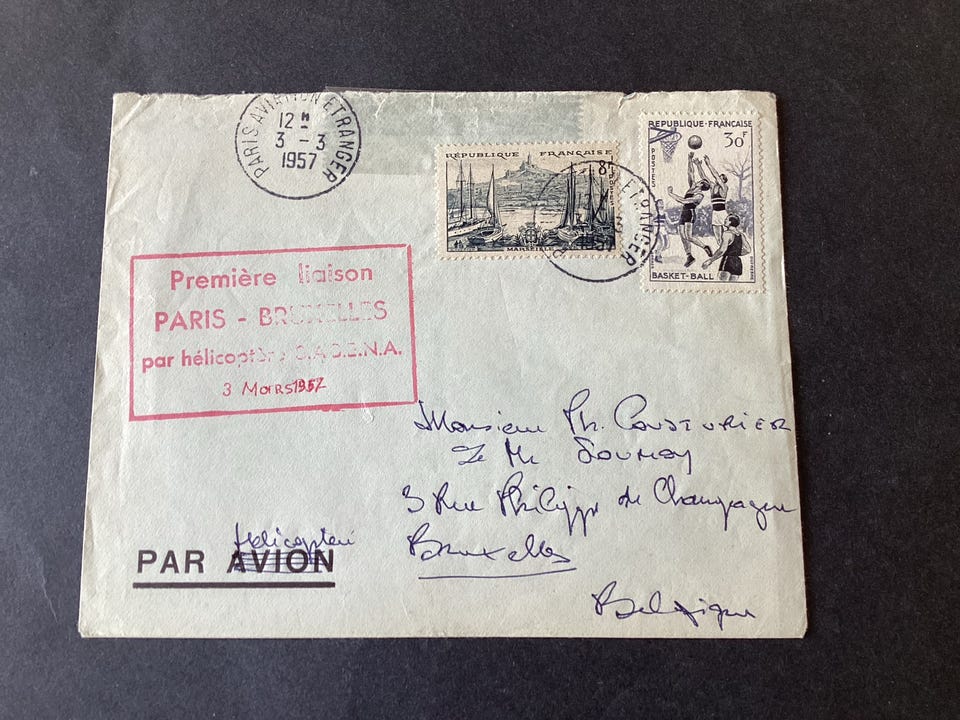 PARIS AVIATION ETRANGER
12H
3 - 3
1957
RÉPUBLIQUE FRANÇAISE
8F
POSTES
MARSEILLE
ETRANGER
REPUBLIQUE-FRANCAISE
30F
POSTES
BASKET-BALL
Première liaison
PARIS - BRUXELLES
par hélicoptère S.A.B.E.N.A.
3 Mars 1957
Monsieur Ph. COUSTURIER
SOUMOY
3 Rue Philippe de Champagne
Bruxelles
Belgique
Hélicoptère
PAR AVION